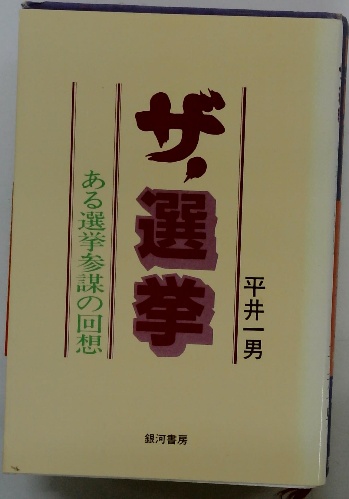 ザ・選挙
ある選挙参謀の回想
平井一男
銀河書房